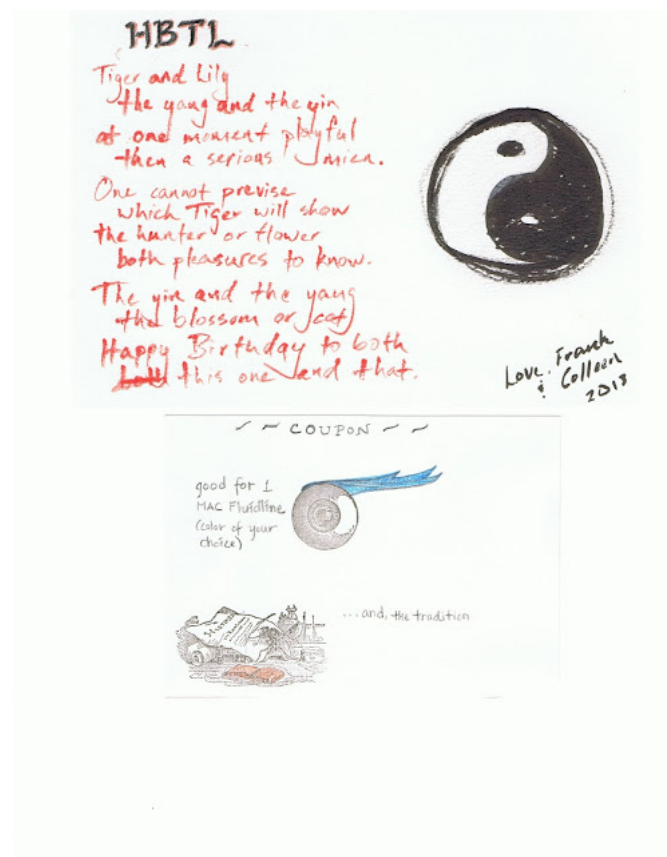 HBTL
Tiger and Lily
the yang and the yin
at one moment playful
then a serious mien.
One cannot previse
which Tiger will show
the hunter or flower
both pleasures to know.
The yin and the yang
the blossom or cat
Happy Birthday to both
both this one and that.
Love, Frank
& Colleen
2013
~ ~ COUPON ~ ~
good for 1
MAC Fluidline
(color of your
choice)
...and, the tradition